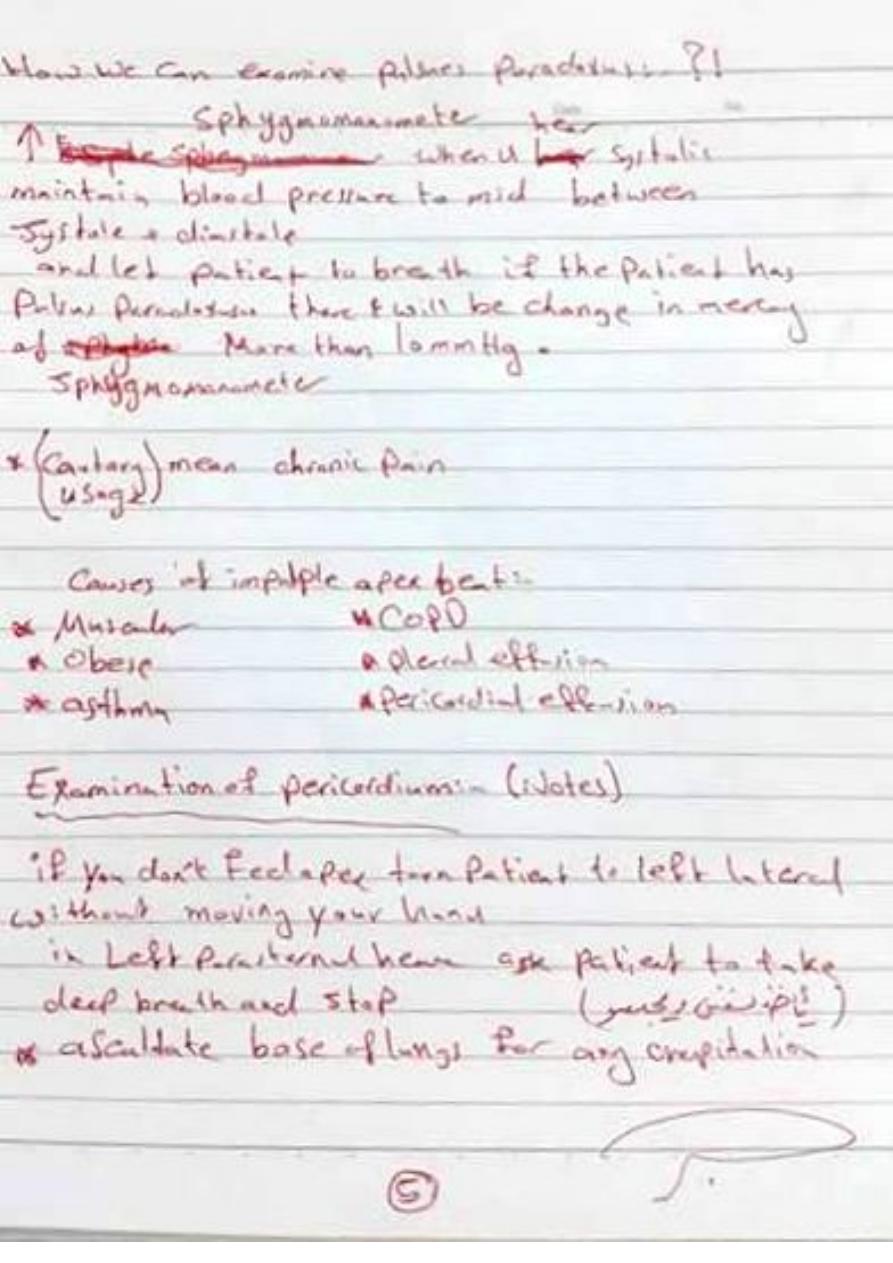 How We Can examine pulsues Paradoxus.. ?!
Sphygmomanomete hear
↑ when u systolic
maintain blood pressure to mid between
Systole & diastole
and let patient to breath if the Patient has
Pulsus Paradoxusus there will be change in mercury
of More than 10mmHg.
Sphygmomanometer
* (Cautary usage) mean chronic Pain
Causes of impulple apex beat:-
* Muscular * COPD
* Obese * plerual effusion
* asthma * Pericordial effusion
Examination of pericordium:- (Notes)
if you don't Feel apex turn Patient to left lateral
without moving your hand
in Left Parasternal heave ask patient to take
deep breath and stop (ياخذ نفس ويحبس)
* ascultate base of lungs for any crepitation
5